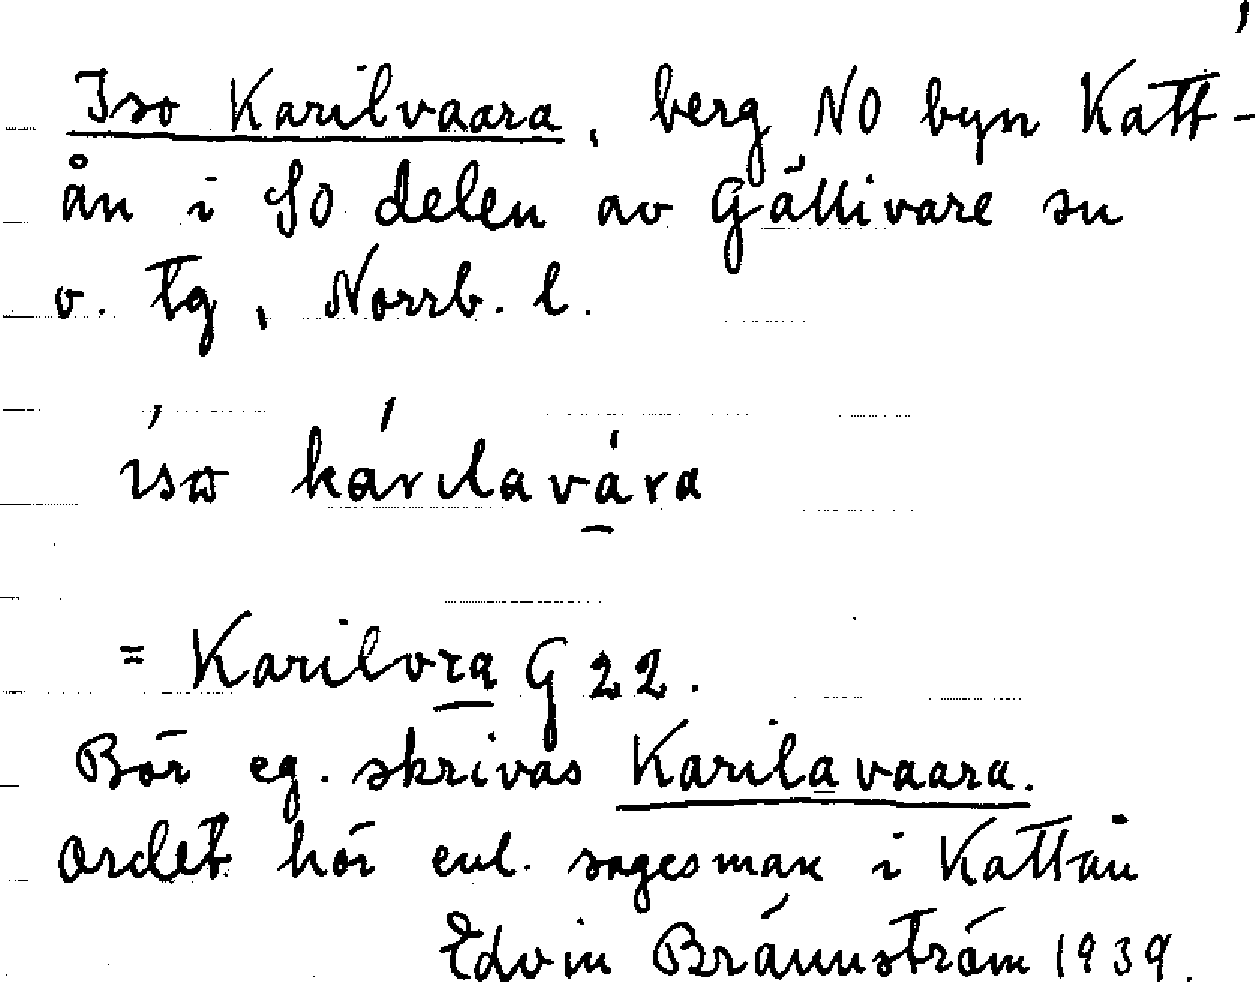 Iso Karilvaara, berg NO byn Katt-
ån i SO delen av Gällivare sn
o. tg, Norrb. l.
íso kárılavára
= Karilvra G 22.
Bör eg. skrivas Karilavaara.
Ordet hör enl. sagesman i Kattån
Edvin Brännström 1939.